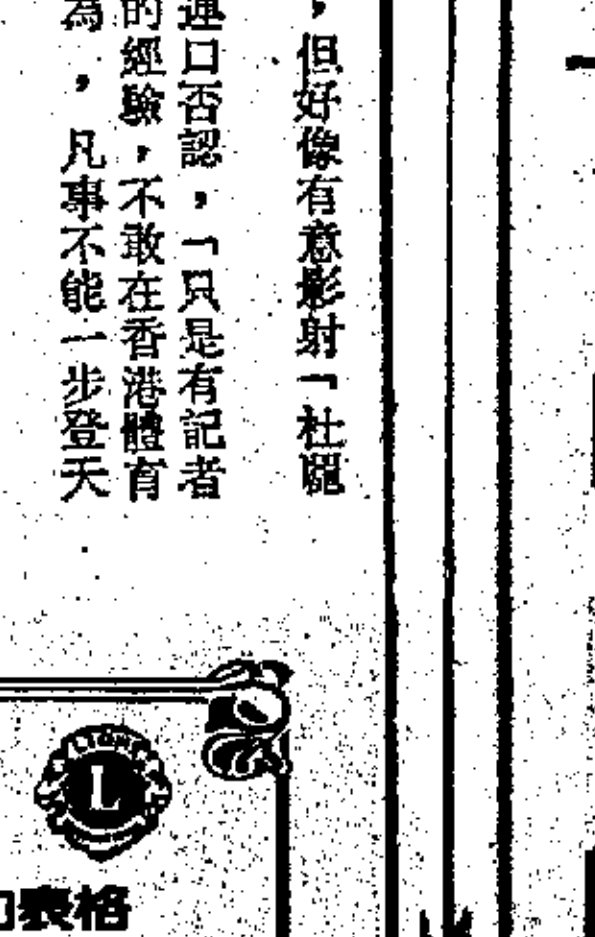 ，但好像有意影射「杜麗
連口否認，「只是有記者
的經驗，不敢在香港體有
為，凡事不能一步登天
LIONS
L
表格